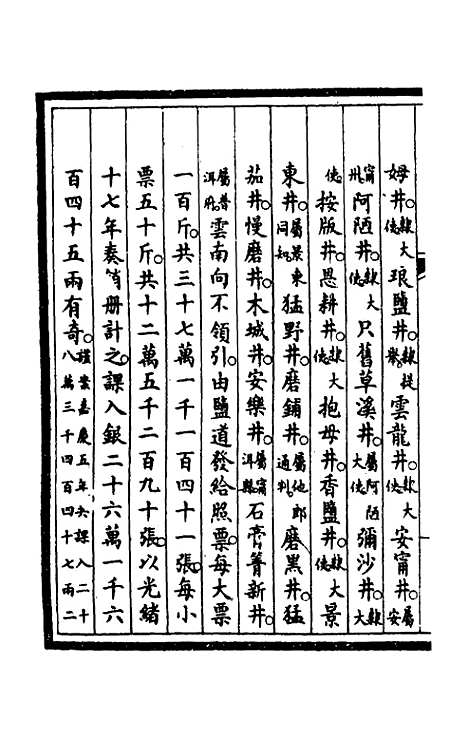 姆井。隸大使。琅鹽井。隸提舉。雲龍井。隸大使。安甯井。屬安
甯州。阿陋井。隸大使。只舊草溪井。屬阿陋大使。彌沙井。隸大
使。按版井。恩耕井。隸大使。抱母井。香鹽井。隸大使。景
東井。屬景東同知。猛野井。磨鋪井。屬他郎通判。磨黑井。猛
茄井。慢磨井。木城井。安樂井。屬甯洱縣。石膏箐新井。
屬普洱府。雲南向不領引。由鹽道發給照票。每大票
一百斤。共三十七萬一千一百四十一張。每小
票五十斤。共十二萬五千二百九十張。以光緒
十七年奏銷册計之。課入銀二十六萬一千六
百四十五兩有奇。謹案嘉慶五年共課入二十八萬三千四百四十七兩二